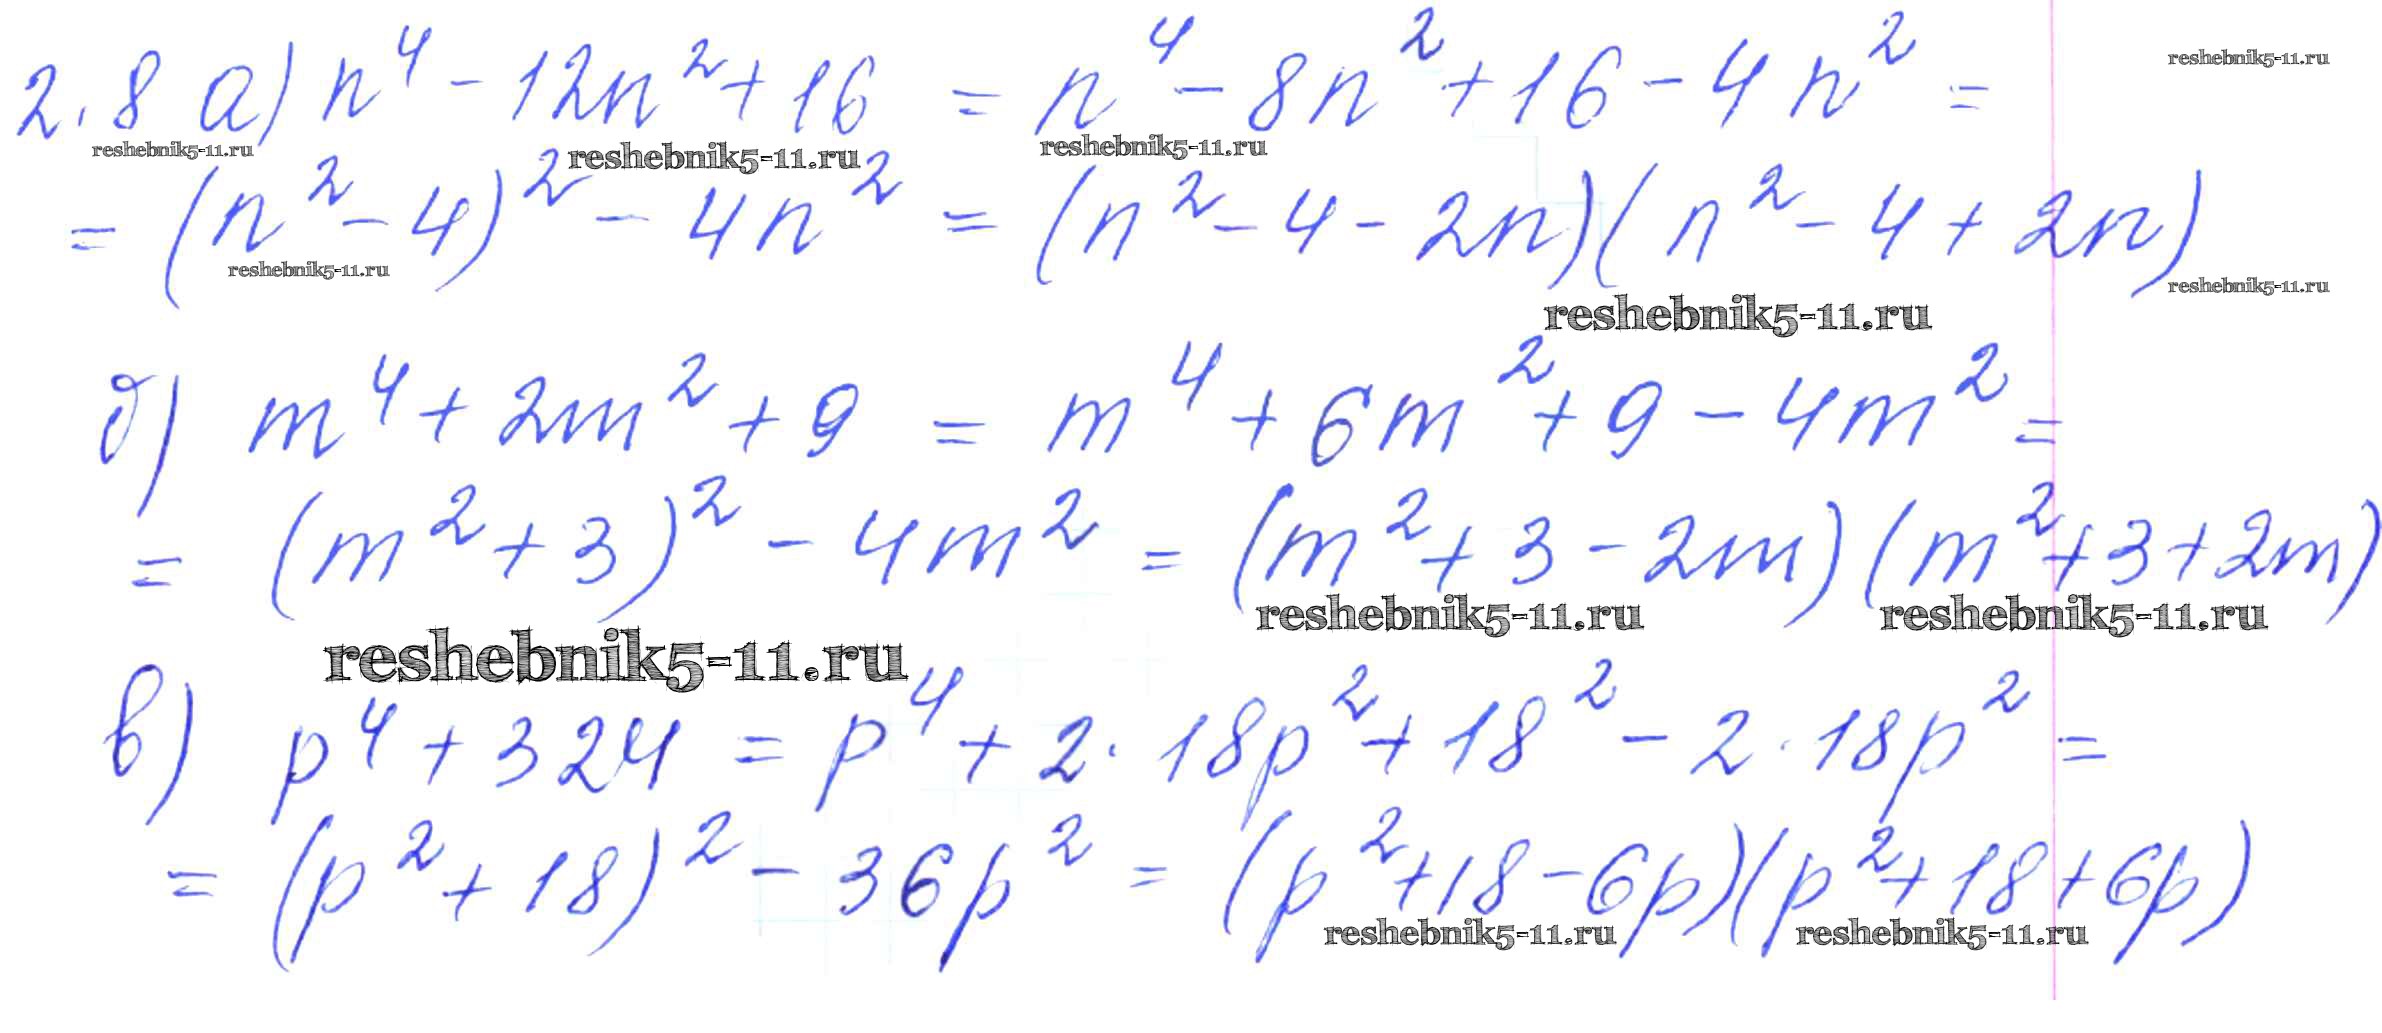 2.8 а) n⁴ - 12n² + 16 = n⁴ - 8n² + 16 - 4n² =
reshebnik5-11.ru
reshebnik5-11.ru reshebnik5-11.ru reshebnik5-11.ru
= (n² - 4)² - 4n² = (n² - 4 - 2n)(n² - 4 + 2n)
reshebnik5-11.ru reshebnik5-11.ru
reshebnik5-11.ru
б) m⁴ + 2m² + 9 = m⁴ + 6m² + 9 - 4m² =
= (m² + 3)² - 4m² = (m² + 3 - 2m)(m² + 3 + 2m)
reshebnik5-11.ru reshebnik5-11.ru
reshebnik5-11.ru
в) p⁴ + 324 = p⁴ + 2 · 18p² + 18² - 2 · 18p² =
= (p² + 18)² - 36p² = (p² + 18 - 6p)(p² + 18 + 6p)
reshebnik5-11.ru reshebnik5-11.ru